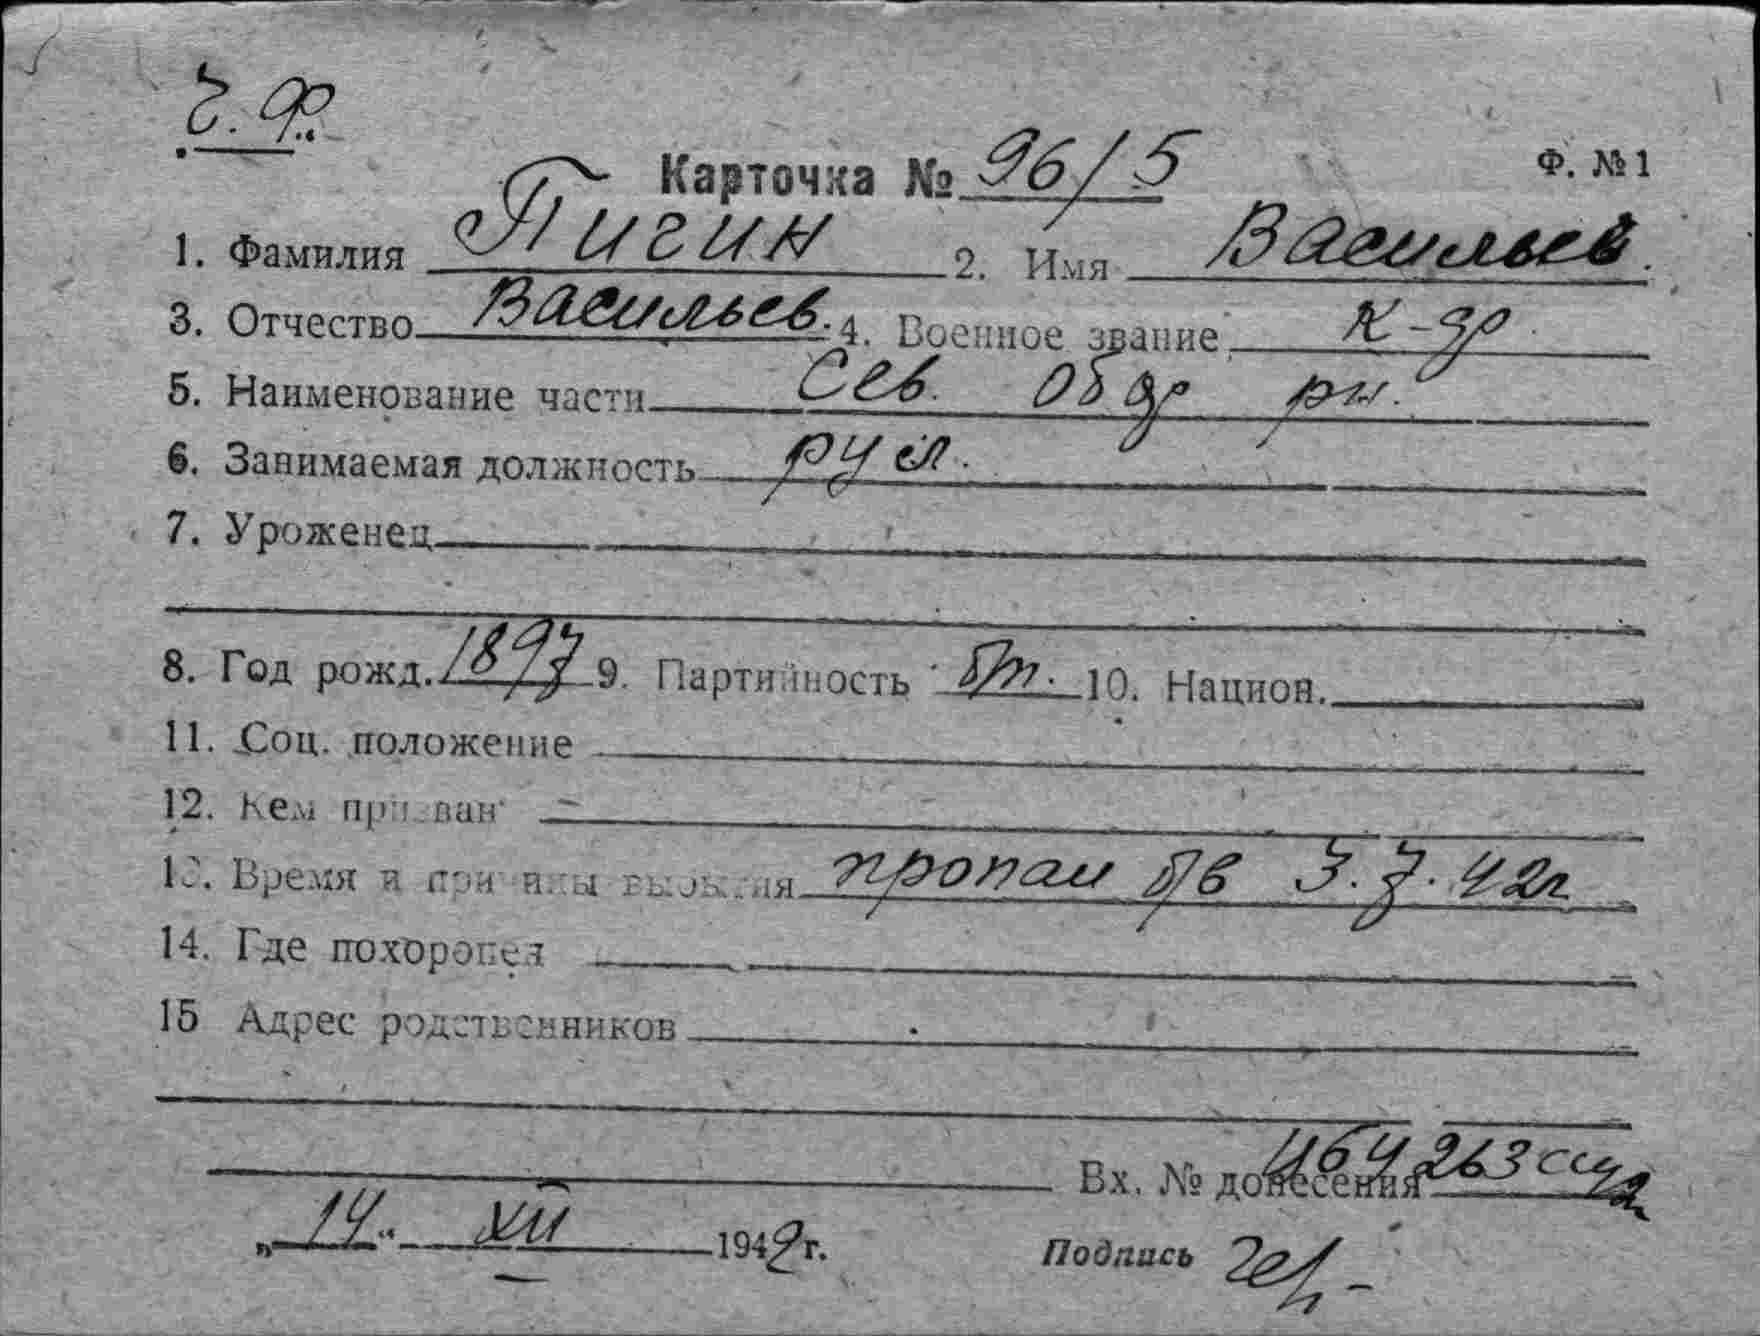 Ч. Ф.
Карточка № 96/5 Ф. № 1
1. Фамилия Пигин 2. Имя Васильев.
3. Отчество Васильев. 4. Военное звание к-др
5. Наименование части Сев. Обдр рн.
6. Занимаемая должность рул.
7. Уроженец
8. Год рожд. 1897 9. Партийность б/п. 10. Национ.
11. Соц. положение
12. Кем призван -
13. Время и причины выбытия пропал б/в 3.7.42г
14. Где похоронен
15 Адрес родственников
Вх. № донесения 263
„14“ XII 1942 г. Подпись